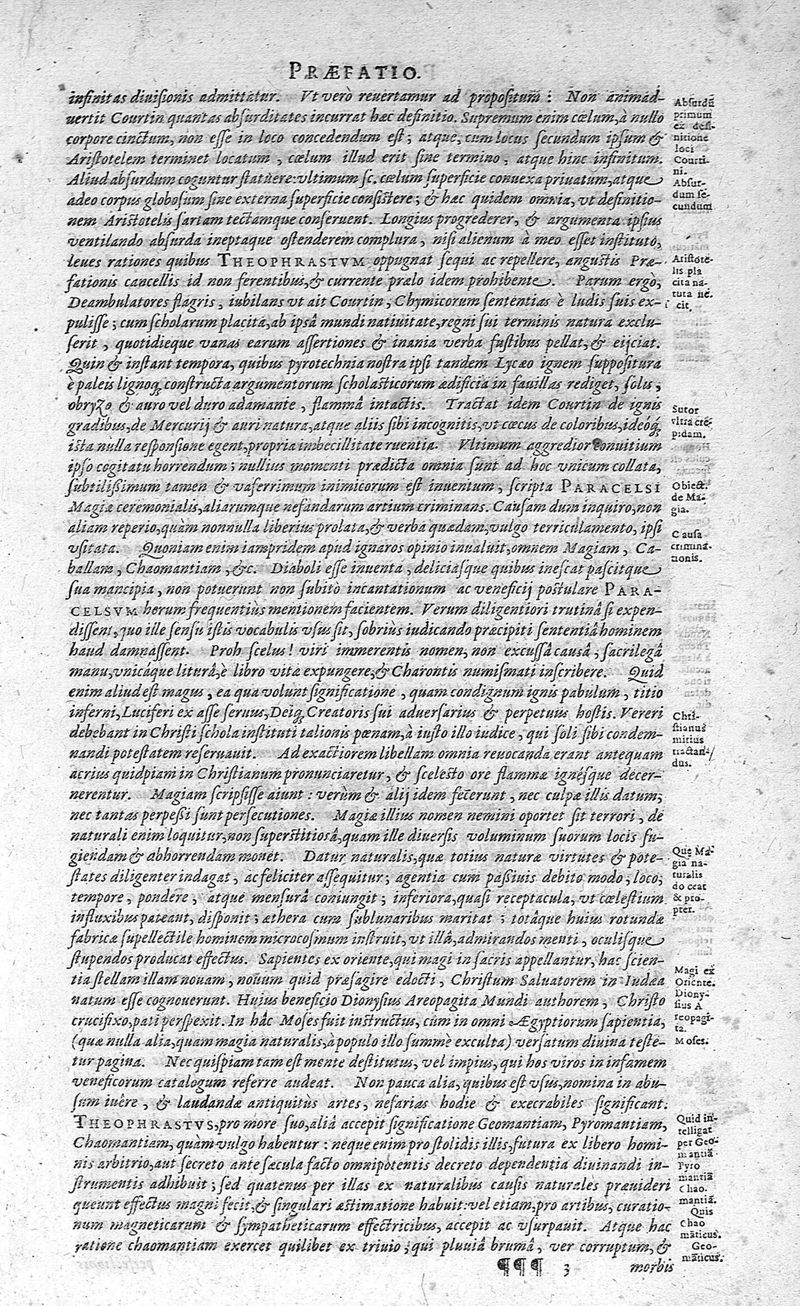 PRÆFATIO.
infinitas diuisionis admittatur. Vt verò reuertamur ad propositum: Non animad-
uertit Courtin quantas absurditates incurrat hæc definitio. Supremum enim cœlum, à nullo
corpore cinctum, non esse in loco concedendum est; atque, cum locus secundum ipsum &
Aristotelem terminet locatum, cœlum illud erit sine termino, atque hinc infinitum.
Aliud absurdum coguntur statuere: vltimum sc. cœlum superficie conuexa priuatum, atque
adeo corpus globosum sine externa superficie consistere; & hæc quidem omnia, vt definitio-
nem Aristotelis sartam tectamque conseruent. Longius progrederer, & argumenta ipsius
ventilando absurda ineptaque ostenderem complura, nisi alienum à meo esset instituto,
leues rationes quibus THEOPHRASTVM oppugnat sequi ac repellere, angustis Præ-
fationis cancellis id non ferentibus, & currente prælo idem prohibente. Parum ergò,
Deambulatores flagris, iubilans vt ait Courtin, Chymicorum sententias è ludis suis ex-
pulisse; cum scholarum placita, ab ipsâ mundi natiuitate, regni sui terminis natura exclu-
serit, quotidieque vanas earum assertiones & inania verba fustibus pellat, & eijciat.
Quin & instant tempora, quibus pyrotechnia nostra ipsi tandem Lycæo ignem suppositura
è paleis lignoq; constructa argumentorum scholasticorum ædificia in fauillas rediget, solu,
obryzo & auro vel duro adamante, flammâ intactis. Tractat idem Courtin de ignis
gradibus, de Mercurij & auri natura, atque aliis sibi incognitis, vt cœcus de coloribus, ideoq;
ista nulla responsione egent, propria imbecillitate ruentia. Vltimum aggredior conuitium
ipso cogitatu horrendum; nullius momenti prædicta omnia sunt ad hoc vnicum collata,
subtilißimum tamen & vaferrimum inimicorum est inuentum, scripta PARACELSI
Magiæ ceremonialis, aliarumque nefandarum artium criminans. Causam dum inquiro, non
aliam reperio, quàm nonnulla liberius prolata, & verba quædam, vulgo terriculamento, ipsi
vsitata. Quoniam enim iampridem apud ignaros opinio inualuit, omnem Magiam, Ca-
ballam, Chaomantiam, &c. Diaboli esse inuenta, deliciasque quibus inescat pascitque
sua mancipia, non potuerunt non subitò incantationum ac veneficij postulare PARA-
CELSVM horum frequentiùs mentionem facientem. Verum diligentiori trutinâ si expen-
dissent, quo ille sensu istis vocabulis vsus sit, sobrius iudicando præcipiti sententiâ hominem
haud damnassent. Proh scelus! viri immerentis nomen, non excussâ causâ, sacrilegâ
manu, vnicáque liturâ, è libro vitæ expungere, & Charontis numismati inscribere. Quid
enim aliud est magus, ea quâ volunt significatione, quam condignum ignis pabulum, titio
inferni, Luciferi ex asse seruus, Deiq; Creatoris sui aduersarius & perpetuus hostis. Vereri
debebant in Christi schola instituti talionis pœnam, à iusto illo iudice, qui soli sibi condem-
nandi potestatem reseruauit. Ad exactiorem libellam omnia reuocanda erant antequam
acrius quidpiam in Christianum pronunciaretur, & scelesto ore flammæ ignésque decer-
nerentur. Magiam scripsisse aiunt: verùm & alij idem fecerunt, nec culpæ illis datum;
nec tantas perpeßi sunt persecutiones. Magiæ illius nomen nemini oportet sit terrori, de
naturali enim loquitur, non superstitiosâ, quam ille diuersis voluminum suorum locis fu-
giendam & abhorrendam monet. Datur naturalis, quæ totius naturæ virtutes & pote-
states diligenter indagat, ac feliciter assequitur; agentia cum paßiuis debito modo, loco,
tempore, pondere, atque mensurâ coniungit; inferiora, quasi receptacula, vt cœlestium
influxibus pateant, disponit; æthera cum sublunaribus maritat; totâque huius rotundæ
fabricæ supellectile hominem microcosmum instruit, vt illâ, admirandos menti, oculisque
stupendos producat effectus. Sapientes ex oriente, qui magi in sacris appellantur, hac scien-
tia stellam illam nouam, nouum quid præsagire edocti, Christum Saluatorem in Iudæa
natum esse cognouerunt. Huius beneficio Dionysius Areopagita Mundi authorem, Christo
crucifixo, pati perspexit. In hâc Moses fuit instructus, cum in omni Ægyptiorum sapientia,
(quæ nulla alia, quam magia naturalis, à populo illo summè exculta) versatum diuina teste-
tur pagina. Nec quispiam tam est mente destitutus, vel impius, qui hos viros in infamem
veneficorum catalogum referre audeat. Non pauca alia, quibus est vsus, nomina in abu-
sum iuêre, & laudandæ antiquitùs artes, nefarias hodie & execrabiles significant.
THEOPHRASTVS, pro more suo, aliâ accepit significatione Geomantiam, Pyromantiam,
Chaomantiam, quàm vulgo habentur: neque enim pro stolidis illis, futura ex libero homi-
nis arbitrio, aut secreto ante sæcula facto omnipotentis decreto dependentia diuinandi in-
strumentis adhibuit; sed quatenus per illas ex naturalibus causis naturales præuideri
queunt effectus magni fecit, & singulari æstimatione habuit: vel etiam, pro artibus, curatio-
num magneticarum & sympatheticarum effectricibus, accepit ac vsurpauit. Atque hac
ratione chaomantiam exercet quilibet ex triuio; qui pluuiâ brumâ, ver corruptum, &
¶¶¶ 3 morbis
Absurdũ
primum
ex defi-
nitione
loci
Courti-
ni.
Absur-
dum se-
cundum
Aristote-
lis pla
cita na-
tura iic
cit,
Sutor
vltra cre-
pidam.
Obiect.
de Ma-
gia.
Causa
criminа-
tionis.
Chri-
stianus
mitius
tractan-
dus.
Quę Ma-
gia na-
turalis
doceat
& pro-
pter.
Magi ex
Oriente.
Diony-
sius A
reopagi-
ta.
Moses.
Quid in-
telligat
per Geo-
mantiã
Pyro
mantiã
Chao.
mantiã.
Quis
Chao
mãticus.
Geo-
mãticus.